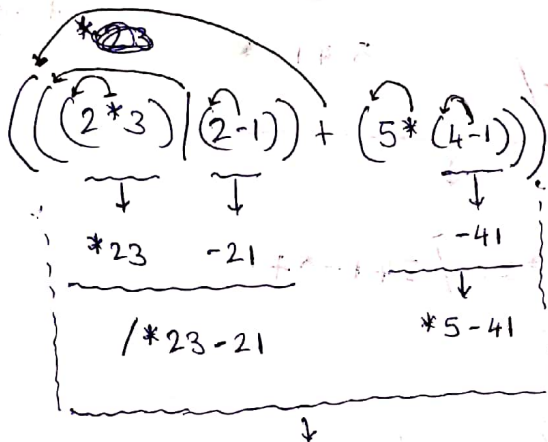 (((2*3)/(2-1)) + (5*(4-1)))
*23 -21 -41
/*23-21 *5-41